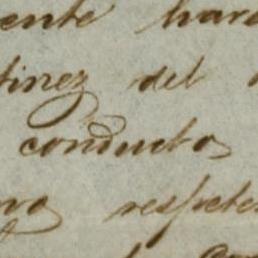 ente hara
tinez del
conducto
respete